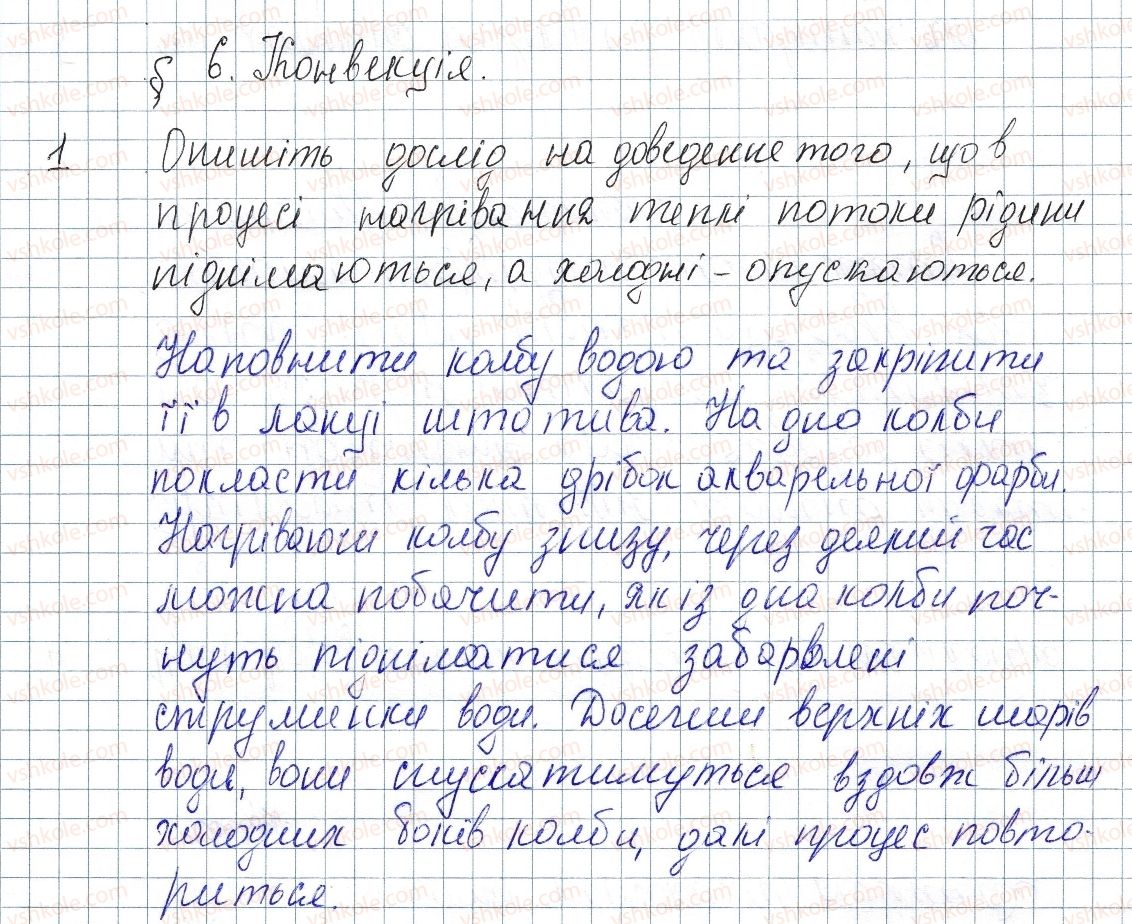 § 6. Конвекція.
1 Опишіть дослід на доведення того, що в
процесі нагрівання теплі потоки рідини
піднімаються, а холодні - опускаються.
Наповнити колбу водою та закріпити
її в лапці штатива. На дно колби
покласти кілька дрібок акварельної фарби.
Нагріваючи колбу знизу, через деякий час
можна побачити, як із дна колби поч-
нуть підніматися забарвлені
струминки води. Досягши верхніх шарів
води, вони спускатимуться вздовж більш
холодних боків колби, далі процес повто-
риться.